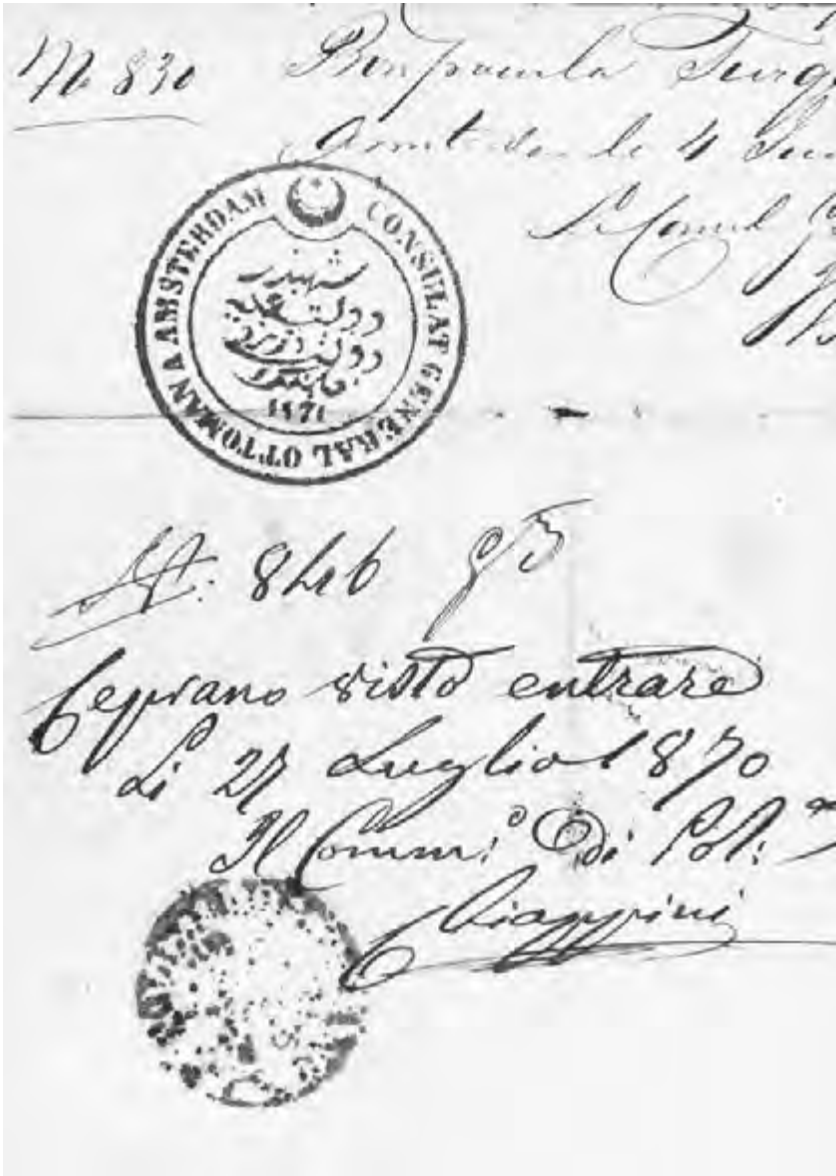 No 830
Bon pour la Turq
Amsterdam le 4 Jui
Le Consul G
CONSULAT GENERAL OTTOMAN A AMSTERDAM
شهبندر
دولت علیه
1871
846
Ceprano visto entrare
Li 27 Luglio 1870
Il Comm:o Di Pol:
Chiappini